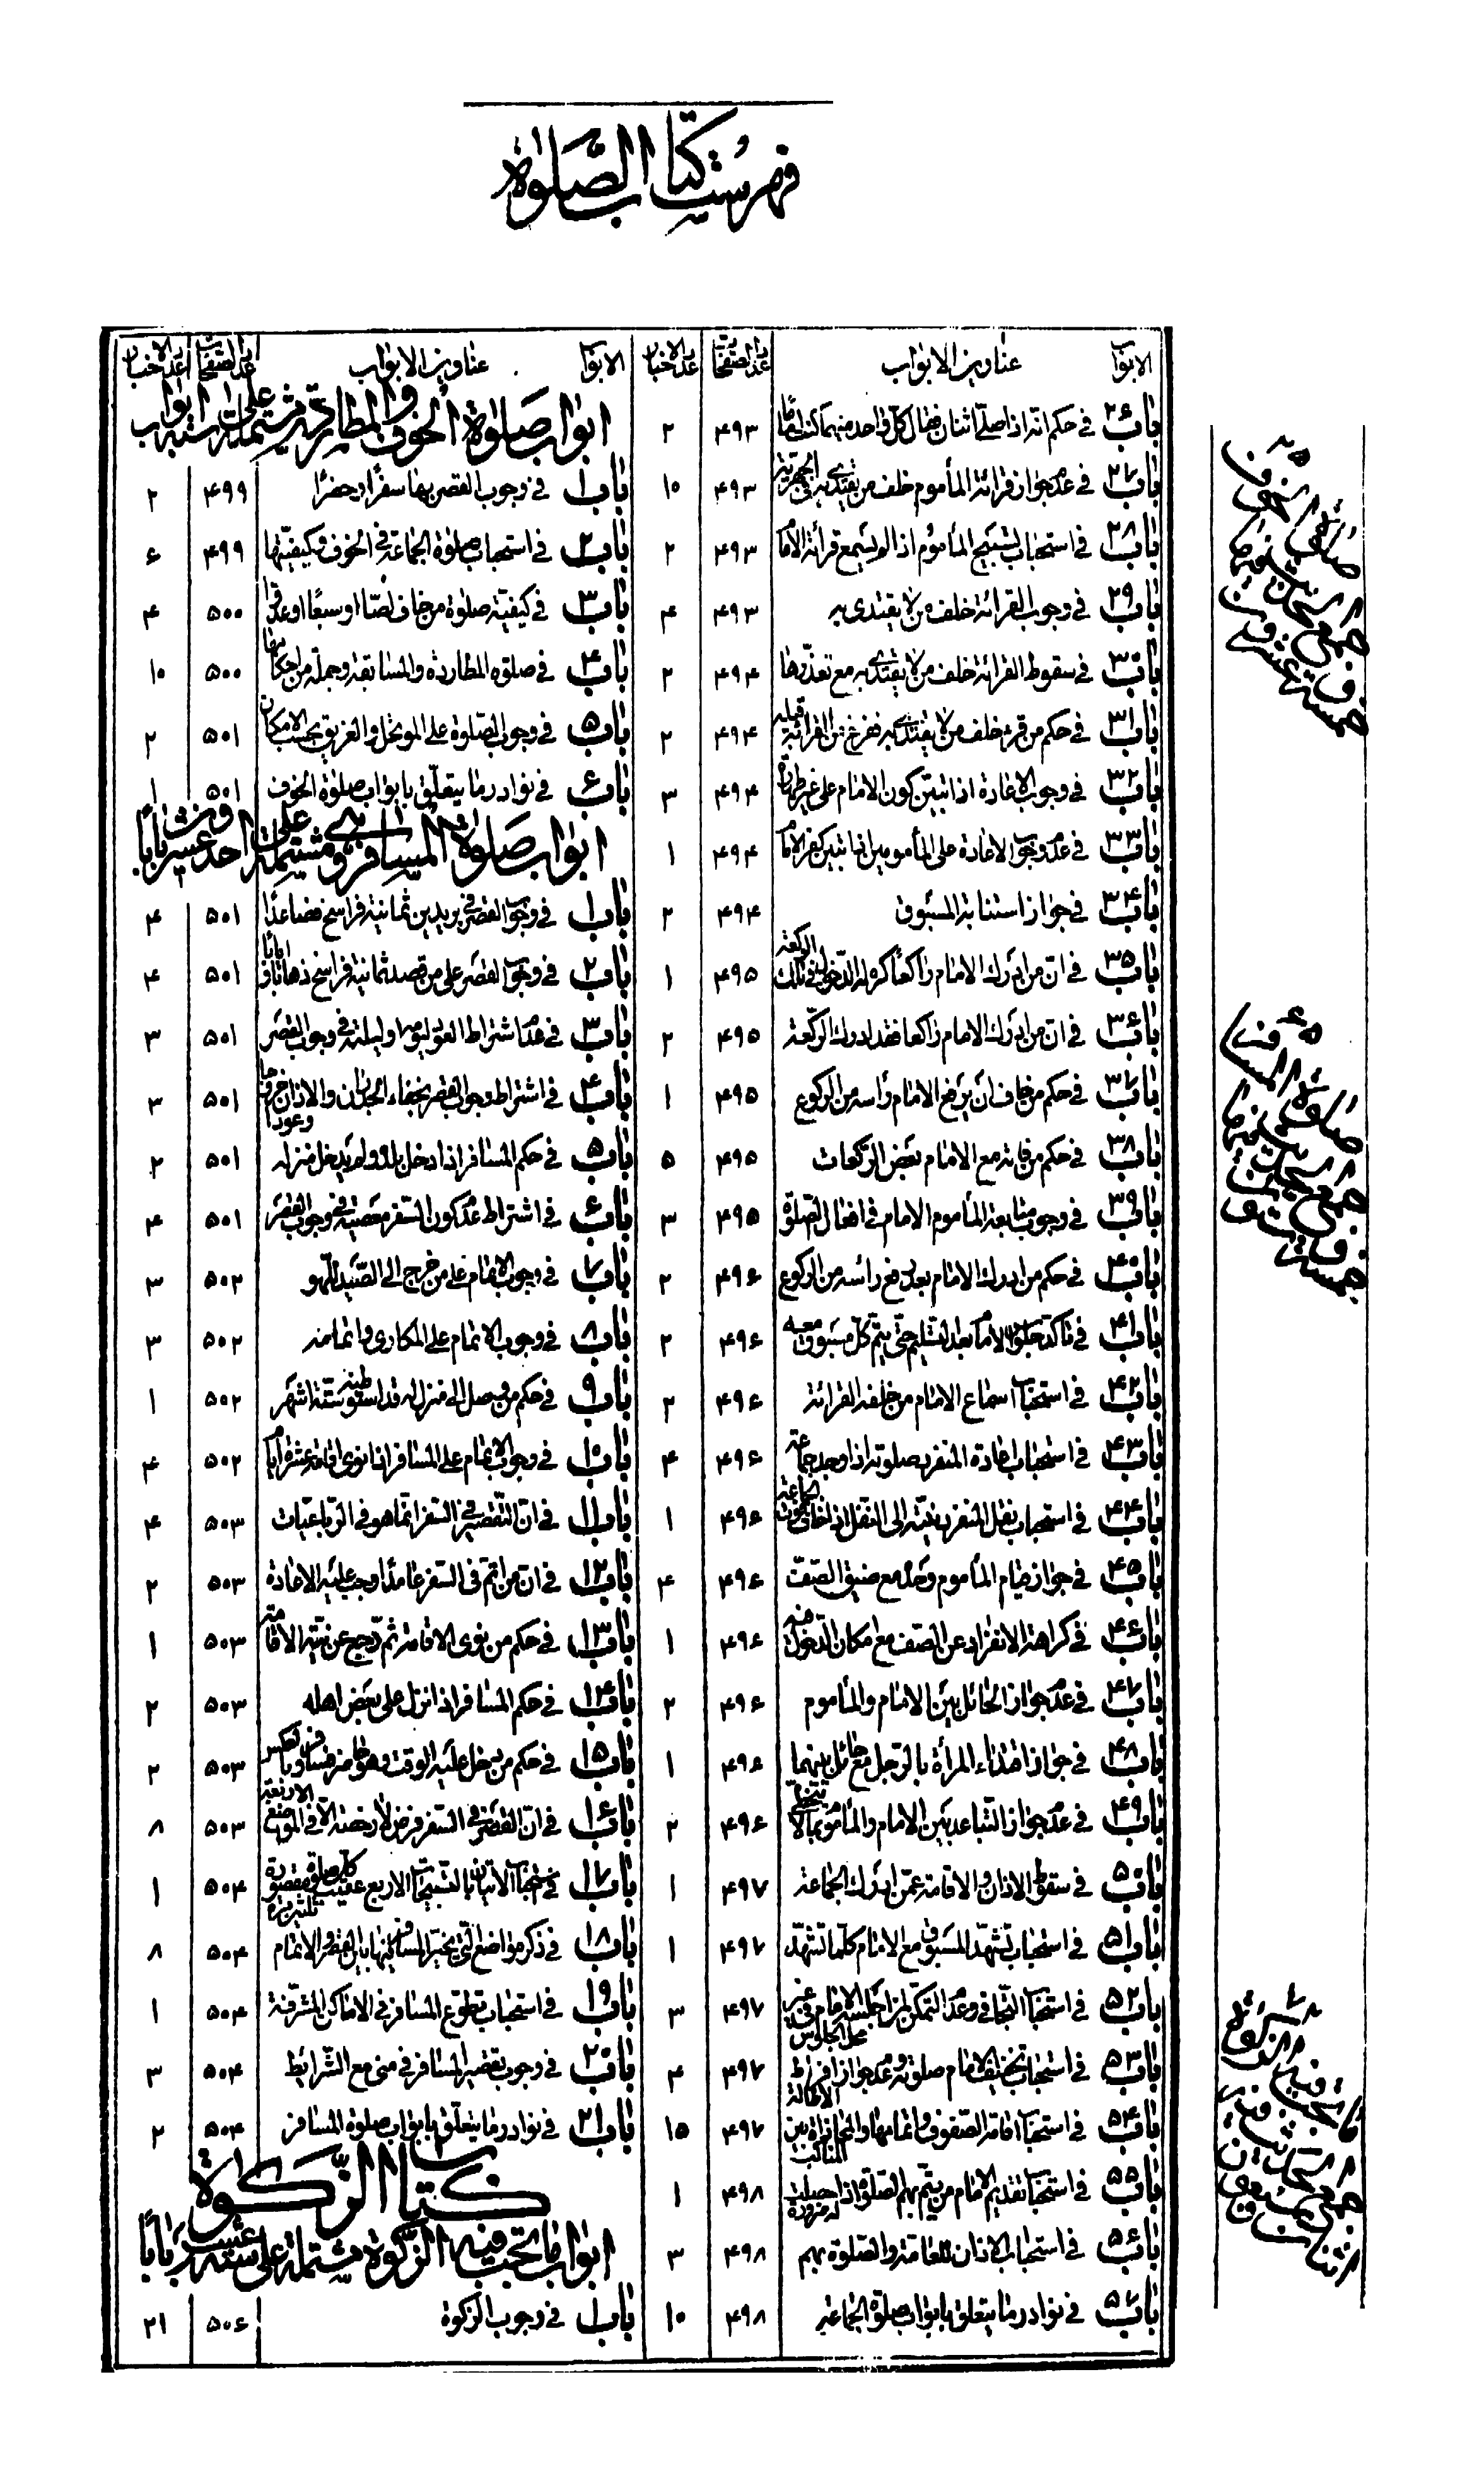 فهرست كتاب الصّلوة
الابواب عناوين الابواب عدد الصفحات عدد الاخبار
باب ٢۶ فى حكم انّه اذا صلّى اثنان فقال كلّ واحد منهما كنت امامًا ۴٩٣ ٢
باب ٢٧ فى عدم جواز قرائة المأموم خلف من يقتدى به فى الجهريّة ۴٩٣ ١٠
باب ٢٨ فى استحباب تسبيح المأموم اذا لم يسمع قرائة الامام ۴٩٣ ٢
باب ٢٩ فى وجوب القرائة خلف من لا يقتدى به ۴٩٣ ۴
باب ٣٠ فى سقوط القرائة خلف من لا يقتدى به مع تعذّرها ۴٩۴ ٢
باب ٣١ فى حكم من قرء خلف من لا يقتدى به ففرغ من القرائة قبله ۴٩۴ ٢
باب ٣٢ فى وجوب الاعادة اذا تبيّن كون الامام على غير طهارة ۴٩۴ ٣
باب ٣٣ فى عدم وجوب الاعادة على المأمومين اذا تبيّن كفر الامام ۴٩۴ ١
باب ٣۴ فى جواز استنابة المسبوق ۴٩۴ ٢
باب ٣۵ فى انّ من ادرك الامام راكعًا كره له الدّخول فى تلك الركعة ۴٩۵ ١
باب ٣۶ فى انّ من ادرك الامام راكعا فقد ادرك الركعة ۴٩۵ ٢
باب ٣٧ فى حكم من خاف ان يرفع الامام رأسه من الركوع ۴٩۵ ١
باب ٣٨ فى حكم من فاته مع الامام بعض الركعات ۴٩۵ ۵
باب ٣٩ فى وجوب متابعة المأموم الامام فى افعال الصّلوة ۴٩۵ ٣
باب ۴٠ فى حكم من ادرك الامام بعد رفع رأسه من الركوع ۴٩۶ ٢
باب ۴١ فى تأكد جلوس الامام بعد التسليم حتّى يتمّ كلّ مسبوق معه ۴٩۶ ٢
باب ۴٢ فى استحباب اسماع الامام من خلفه القرائة ۴٩۶ ٢
باب ۴٣ فى استحباب اعادة المنفرد صلوته اذا وجد جماعة ۴٩۶ ۴
باب ۴۴ فى استحباب نقل المنفرد نيّته الى النفل اذا خاف فوت الجماعة ۴٩۶ ١
باب ۴۵ فى جواز قيام المأموم وحده مع ضيق الصّفّ ۴٩۶ ۴
باب ۴۶ فى كراهة الانفراد عن الصّف مع امكان الدخول فيه ۴٩۶ ١
باب ۴٧ فى عدم جواز الحائل بين الامام والمأموم ۴٩۶ ٢
باب ۴٨ فى جواز اقتداء المرأة بالرّجل مع حائل بينهما ۴٩۶ ١
باب ۴٩ فى عدم جواز التّباعد بين الامام والمأموم بما لا يتخطّى ۴٩۶ ٢
باب ۵٠ فى سقوط الاذان والاقامة عمّن ادرك الجماعة ۴٩٧ ١
باب ۵١ فى استحباب تشهّد المسبوق مع الامام كلّما تشهّد ۴٩٧ ١
باب ۵٢ فى استحباب التّجافى وعدم التمكّن لمن اجلسه الامام فى غير محلّ الجلوس ۴٩٧ ٣
باب ۵٣ فى استحباب تخفيف الامام صلوته وعدم جواز افراط الاطالة ۴٩٧ ۴
باب ۵۴ فى استحباب اقامة الصّفوف واتمامها والمحاذاة بين المناكب ۴٩٧ ١۵
باب ۵۵ فى استحباب تقديم الامام من يتمّ بهم الصّلوة اذا حصلت له ضرورة ۴٩٨ ١
باب ۵۶ فى استحباب الاذان للعامّة والصّلوة بهم ۴٩٨ ٣
باب ۵٧ فى نوادر ما يتعلق بابواب صلوة الجماعة ۴٩٨ ١٠
الابواب عناوين الابواب عدد الصفحات عدد الاخبار
ابواب صلوة الخوف والمطاردة مشتملة على ستة ابواب
باب ١ فى وجوب القصر بها سفرًا وحضرًا ۴٩٩ ٢
باب ٢ فى استحباب صلوة الجماعة فى الخوف وكيفيّتها ۴٩٩ ۶
باب ٣ فى كيفيّة صلوة من خاف لصّا او سبعًا او عدوّا ۵٠٠ ۴
باب ۴ فى صلوة المطاردة والمسابقة وجملة من احكامها ۵٠٠ ١٠
باب ۵ فى وجوب الصّلوة على الموتحل والغريق بحسب الامكان ۵٠١ ٢
باب ۶ فى نوادر ما يتعلّق بابواب صلوة الخوف ۵٠١ ١
ابواب صلوة المسافر وهى مشتملة على احد وعشرين بابًا
باب ١ فى وجوب القصر فى بريدين ثمانية فراسخ فصاعدًا ۵٠١ ۴
باب ٢ فى وجوب القصر على من قصد ثمانية فراسخ ذهابًا وايابًا ۵٠١ ۴
باب ٣ فى عدم اشتراط العود ليومه او ليلته فى وجوب القصر ۵٠١ ٣
باب ۴ فى اشتراط وجوب القصر بخفاء الجدران والاذان خروجا وعودا ۵٠١ ٣
باب ۵ فى حكم المسافر اذا دخل بلده ولم يدخل منزله ۵٠١ ٢
باب ۶ فى اشتراط عدم كون السّفر معصية فى وجوب القصر ۵٠١ ۴
باب ٧ فى وجوب الاتمام على من خرج الى الصّيد للّهو ۵٠٢ ٣
باب ٨ فى وجوب الاتمام على المكارى وامثاله ۵٠٢ ٣
باب ٩ فى حكم من وصل الى منزل له قد استوطنه ستّة اشهر ۵٠٢ ١
باب ١٠ فى وجوب الاتمام على المسافر اذا نوى اقامة عشرة ايّام ۵٠٢ ۴
باب ١١ فى انّ التّقصير فى السّفر انّما هو فى الرّباعيّات ۵٠٣ ۴
باب ١٢ فى انّ من اتمّ فى السّفر عامدًا وجب عليه الاعادة ۵٠٣ ٢
باب ١٣ فى حكم من نوى الاقامة ثمّ رجع عن نيّة الاقامة ۵٠٣ ١
باب ١۴ فى حكم المسافر اذا نزل على بعض اهله ۵٠٣ ٢
باب ١۵ فى حكم من دخل عليه الوقت وهو حاضر فسافر وبالعكس ۵٠٣ ٢
باب ١۶ فى انّ القصر فى السّفر فرض لا رخصة الّا فى المواضع الاربعة ۵٠٣ ٨
باب ١٧ فى استحباب الاتيان بالتسبيحات الاربع عقيب كلّ صلوة مقصورة ثلثين مرّة ۵٠۴ ١
باب ١٨ فى ذكر مواضع الّتى يتخيّر المسافر فيها بين القصر والاتمام ۵٠۴ ٨
باب ١٩ فى استحباب تطوّع المسافر فى الاماكن المشرّفة ۵٠۴ ١
باب ٢٠ فى وجوب تقصير المسافر فى منى مع الشّرائط ۵٠۴ ٣
باب ٢١ فى نوادر ما يتعلّق بابواب صلوة المسافر ۵٠۴ ٢
كتاب الزّكوة
ابواب ما تجب فيه الزّكوة مشتملة على سبعة عشر بابًا
باب ١ فى وجوب الزكوة ۵٠۶ ٢١
صلوة الخوف
جمع احاديث
خمسة عشرون
صلوة المسافر
جمع احاديث